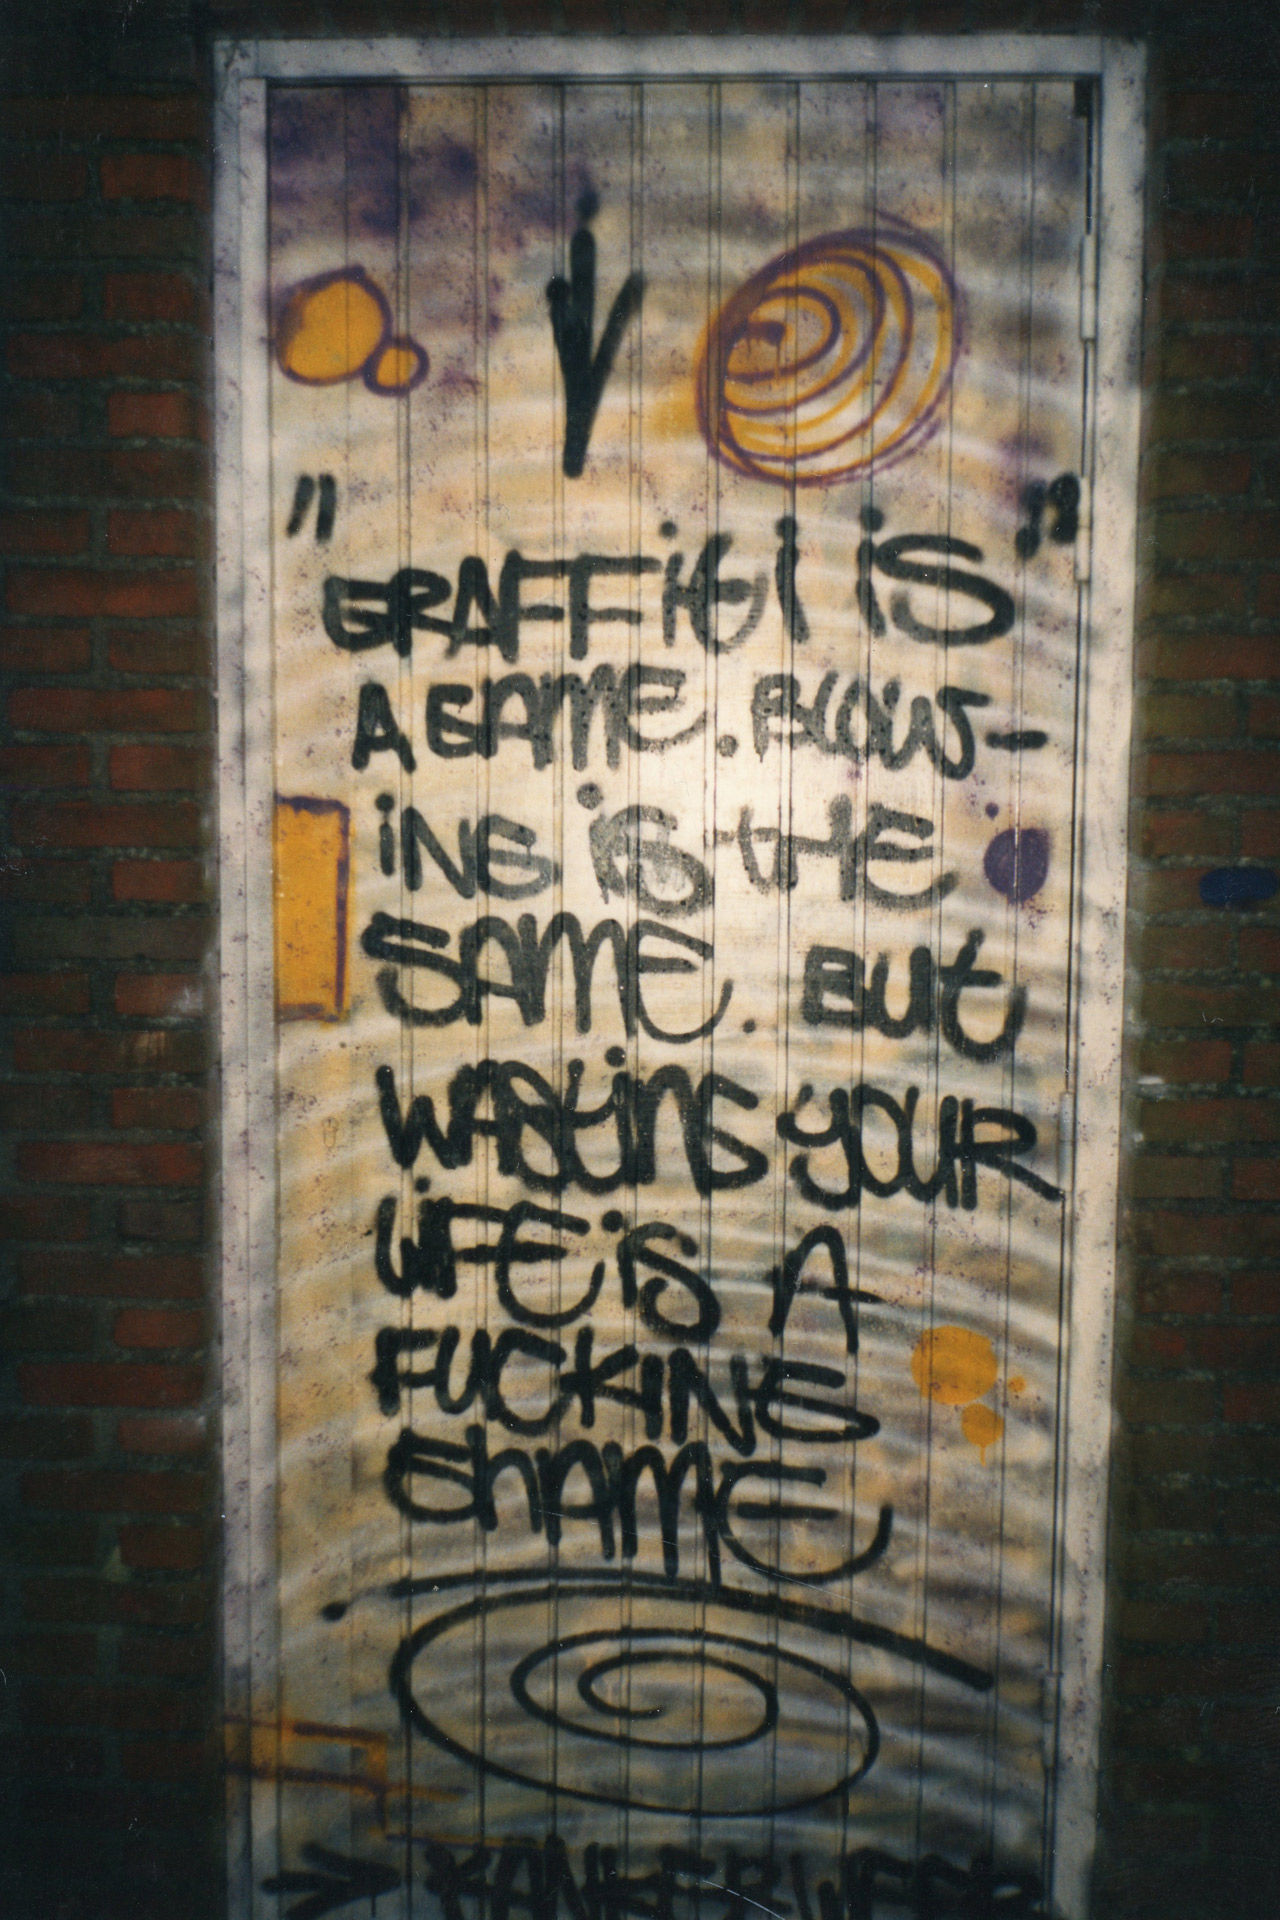 "GRAFFiti iS"
A GAME. BLOW-
iNG iS tHE
SAME. BUt
WAStiNG YOUR
LiFE iS A
FUCKING
ShAME